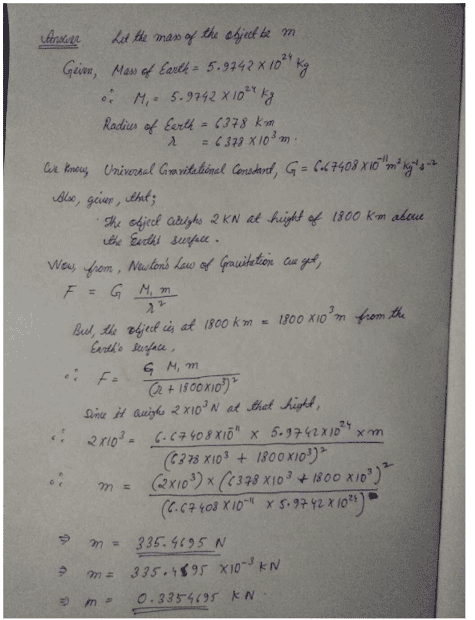 Answer Let the mass of the object be m
Given, Mass of Earth = 5.9742 X 10²⁴ Kg
∴ M₁ = 5.9742 X 10²⁴ Kg
Radius of Earth = 6378 Km
r = 6378 X 10³ m.
We know, Universal Gravitational Constant, G = 6.67408 X 10⁻¹¹ m³ Kg⁻¹ s⁻²
Also, given, that;
The object weighs 2 KN at height of 1800 Km above
the Earth's surface.
Now, from, Newton's Law of Gravitation we get,
F = G M₁ m / r²
But, the object is at 1800 Km = 1800 X10³ m from the
Earth's surface,
∴ F = G M₁ m / (r + 1800X10³)²
Since it weighs 2 X10³ N at that height,
∴ 2 X10³ = 6.67408 X10⁻¹¹ X 5.9742 X10²⁴ X m / (6378 X10³ + 1800X10³)²
∴ m = (2X10³) X (6378 X10³ + 1800 X10³)² / (6.67408 X10⁻¹¹ X 5.9742 X 10²⁴)
⇒ m = 335.4695 N
⇒ m = 335.4695 X10⁻³ KN
⇒ m = 0.3354695 KN.